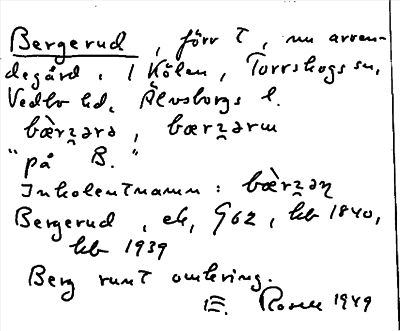 Bergerud, förr T, nu arren-
degård. i Kölen, Torrskogs sn,
Vedbo hd, Älvsborgs l.
bæ̀rz̠ərə, bærz̠ərɯ
"på B."
Inkolentnamn: bæ̀rz̠əɳ
Bergerud, ek, G62, kb 1840,
kb 1939
Berg runt omkring.
E. Rosell 1949